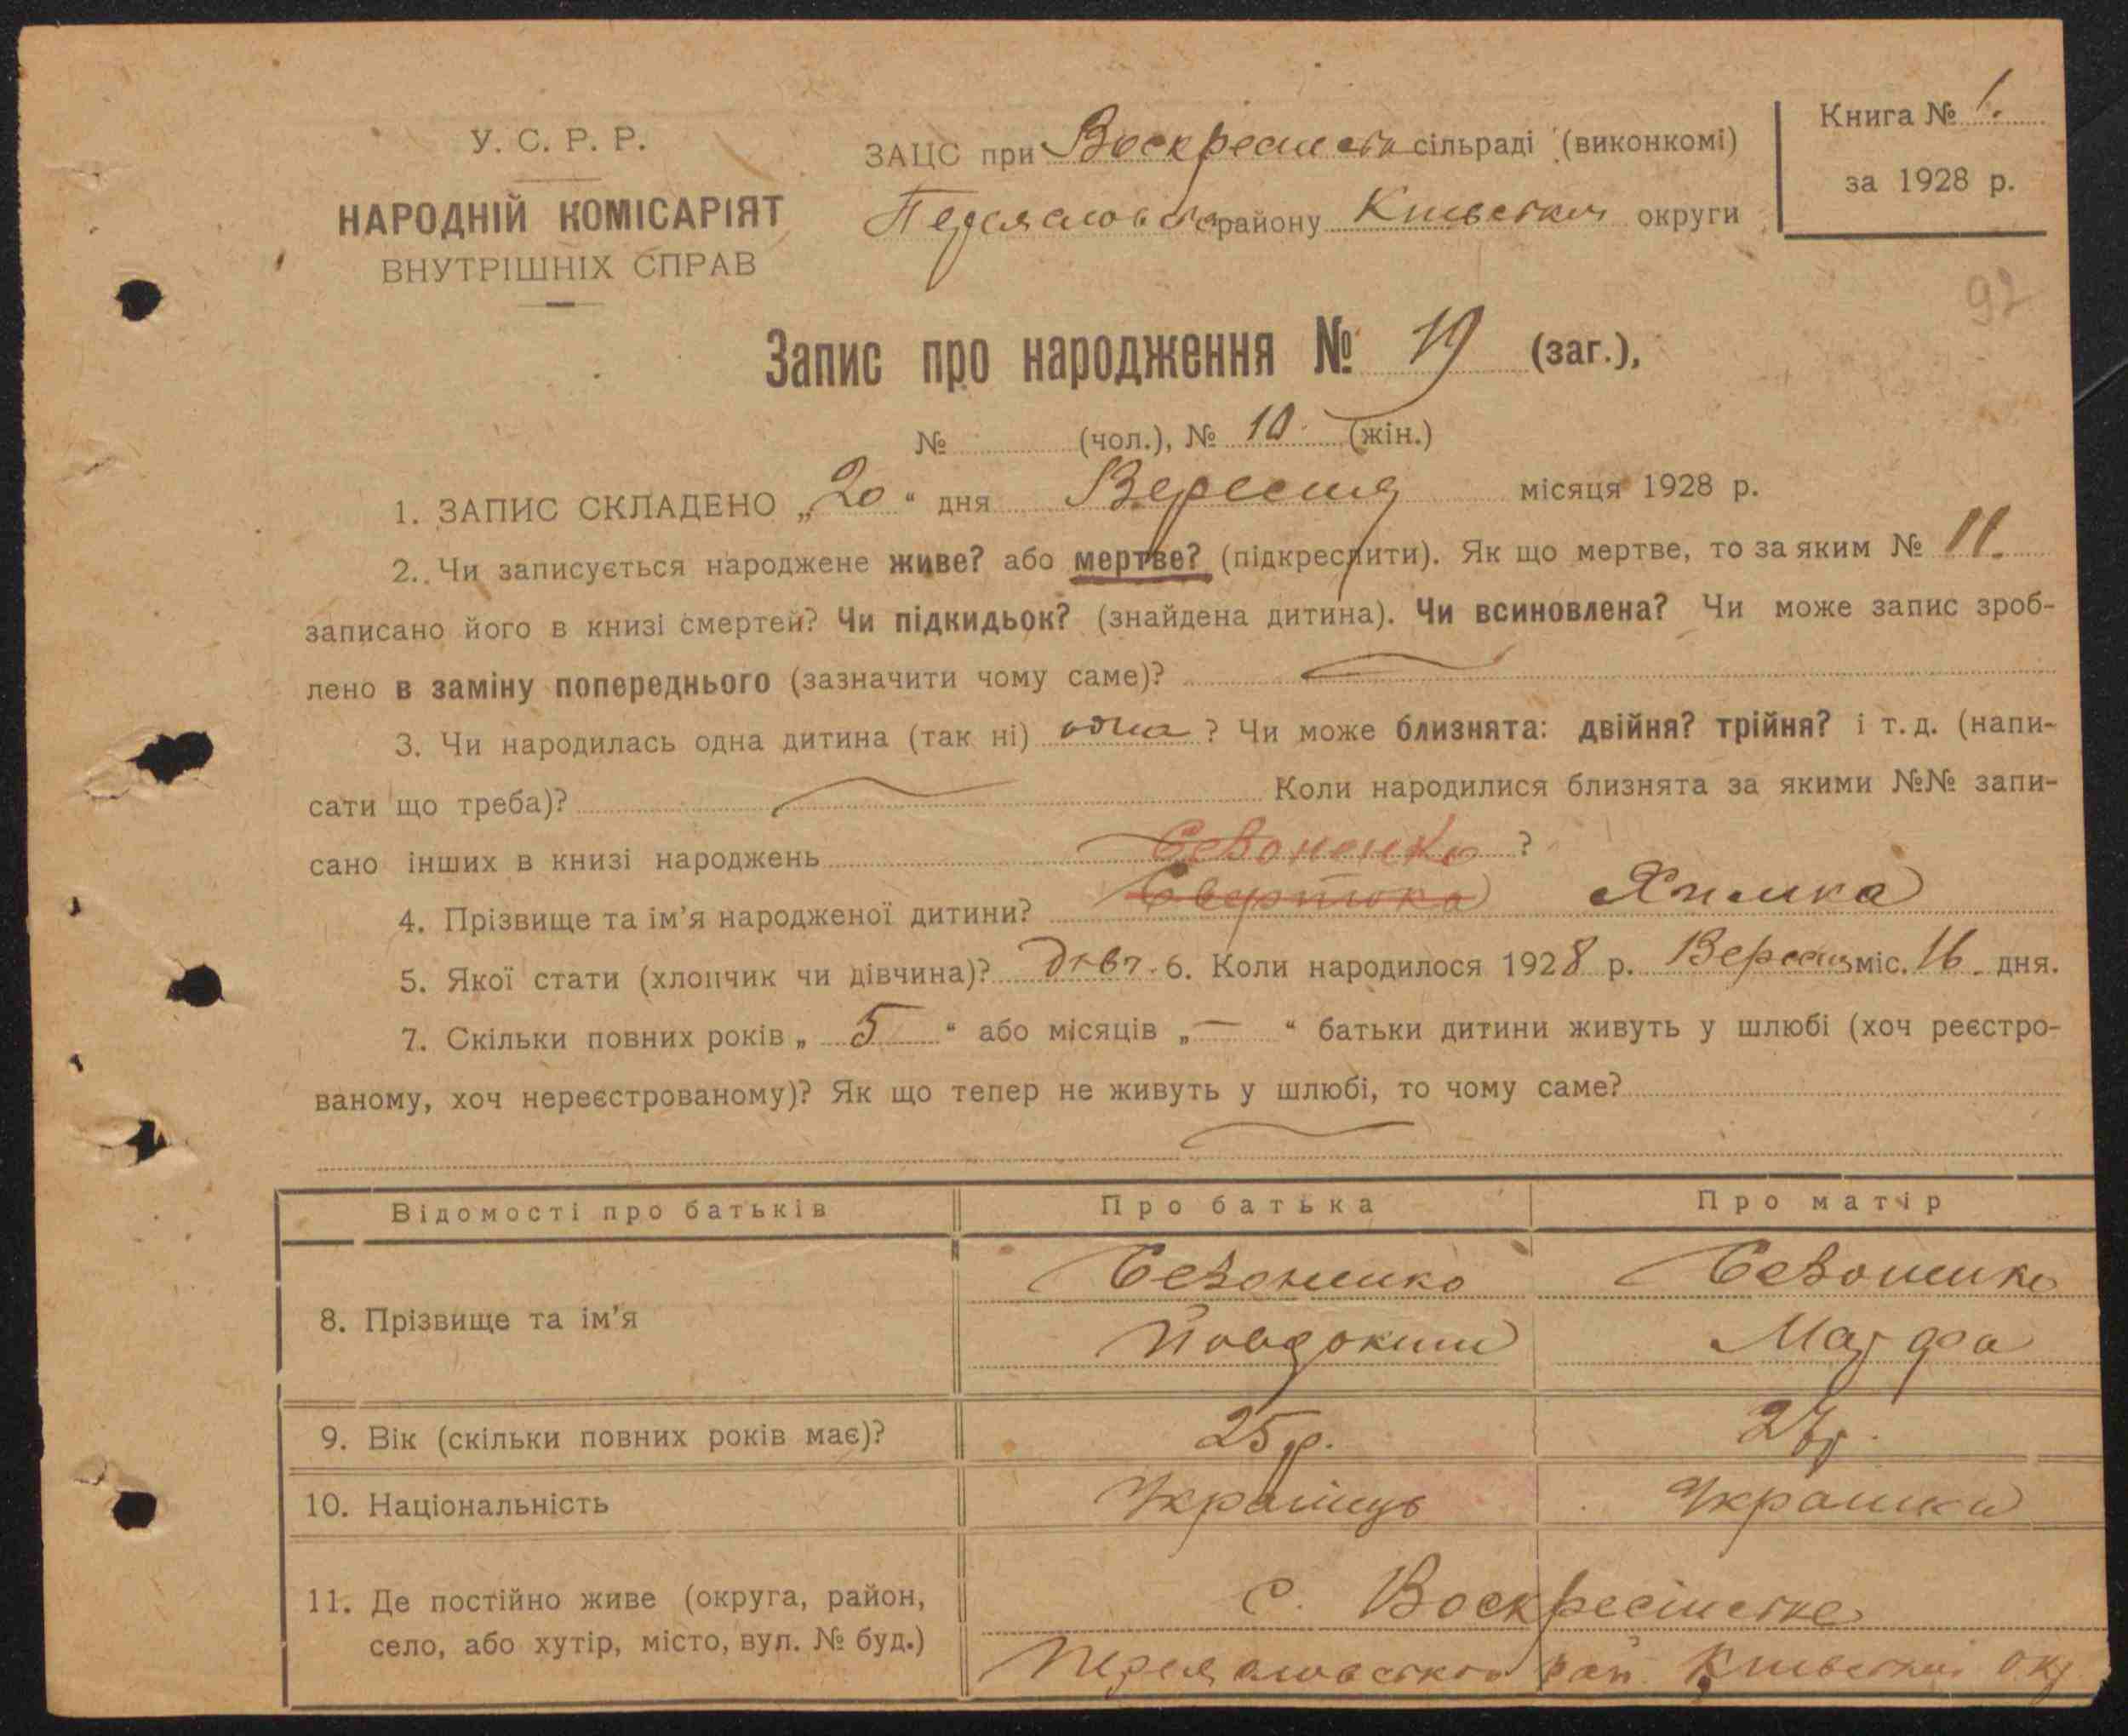 У. С. Р. Р.
НАРОДНІЙ КОМІСАРІЯТ
ВНУТРІШНІХ СПРАВ
ЗАЦС при Воскресінськ сільраді (виконкомі)
району Київської округи
Книга № 1.
за 1928 р.
92
Запис про народження № 19 (заг.),
№ (чол.), № 10 (жін.)
1. ЗАПИС СКЛАДЕНО „20“ дня Вересня місяця 1928 р.
2. Чи записується народжене живе? або мертве? (підкреслити). Як що мертве, то за яким № 11.
записано його в книзі смертей? Чи підкидьок? (знайдена дитина). Чи всиновлена? Чи може запис зроб-
лено в заміну попереднього (зазначити чому саме)?
3. Чи народилась одна дитина (так ні) одна ? Чи може близнята: двійня? трійня? і т. д. (напи-
сати що треба)? Коли народилися близнята за якими №№ запи-
сано інших в книзі народжень ?
Севоненко
4. Прізвище та ім’я народженої дитини? Химка
5. Якої стати (хлопчик чи дівчина)? Дівч. 6. Коли народилося 1928 р. Вересня міс. 16. дня.
7. Скільки повних років „ 5 “ або місяців „ — “ батьки дитини живуть у шлюбі (хоч реєстро-
ваному, хоч нереєстрованому)? Як що тепер не живуть у шлюбі, то чому саме?
Відомості про батьків Про батька Про матір
8. Прізвище та ім’я
Севоненко Севоненко
Йовдоким Марфа
9. Вік (скільки повних років має)? 25 р. 27 р.
10. Національність Українць Українка
11. Де постійно живе (округа, район,
село, або хутір, місто, вул. № буд.)
с. Воскресінське
рай. Київської окр